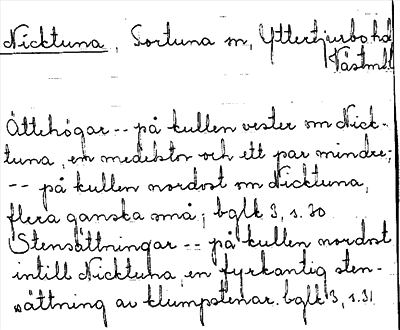 Nicktuna, Sortuna sn, Yttertjurbo hd
Västmll
Ättehögar -- på kullen vester om Nick-
tuna, en medelstor och ett par mindre;
-- på kullen nordost om Nicktuna,
flera ganska små; bglk 3, s. 30
Stensättningar -- på kullen nordost
intill Nicktuna, en fyrkantig sten-
sättning av klumpstenar. bglk 3, s. 31